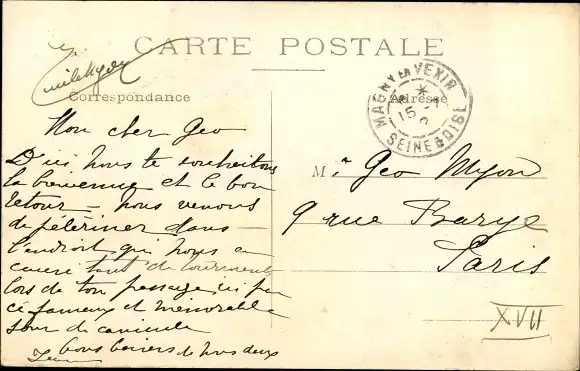 CARTE POSTALE
Correspondance
Adresse
MAGNY EN VEXIN
15
SEINE & OISE
Mon cher Geo
D'ici nous te souhaitons
la bienvenue et le bon
retour – nous venons
de pélériner dans
l'endroit qui nous a
causé tant de tourments
lors de ton passage ici par
ce fameux et mémorable
jour de canicule
bons baisers de nous deux
M. Geo Myon
9 rue Barye
Paris
XVII